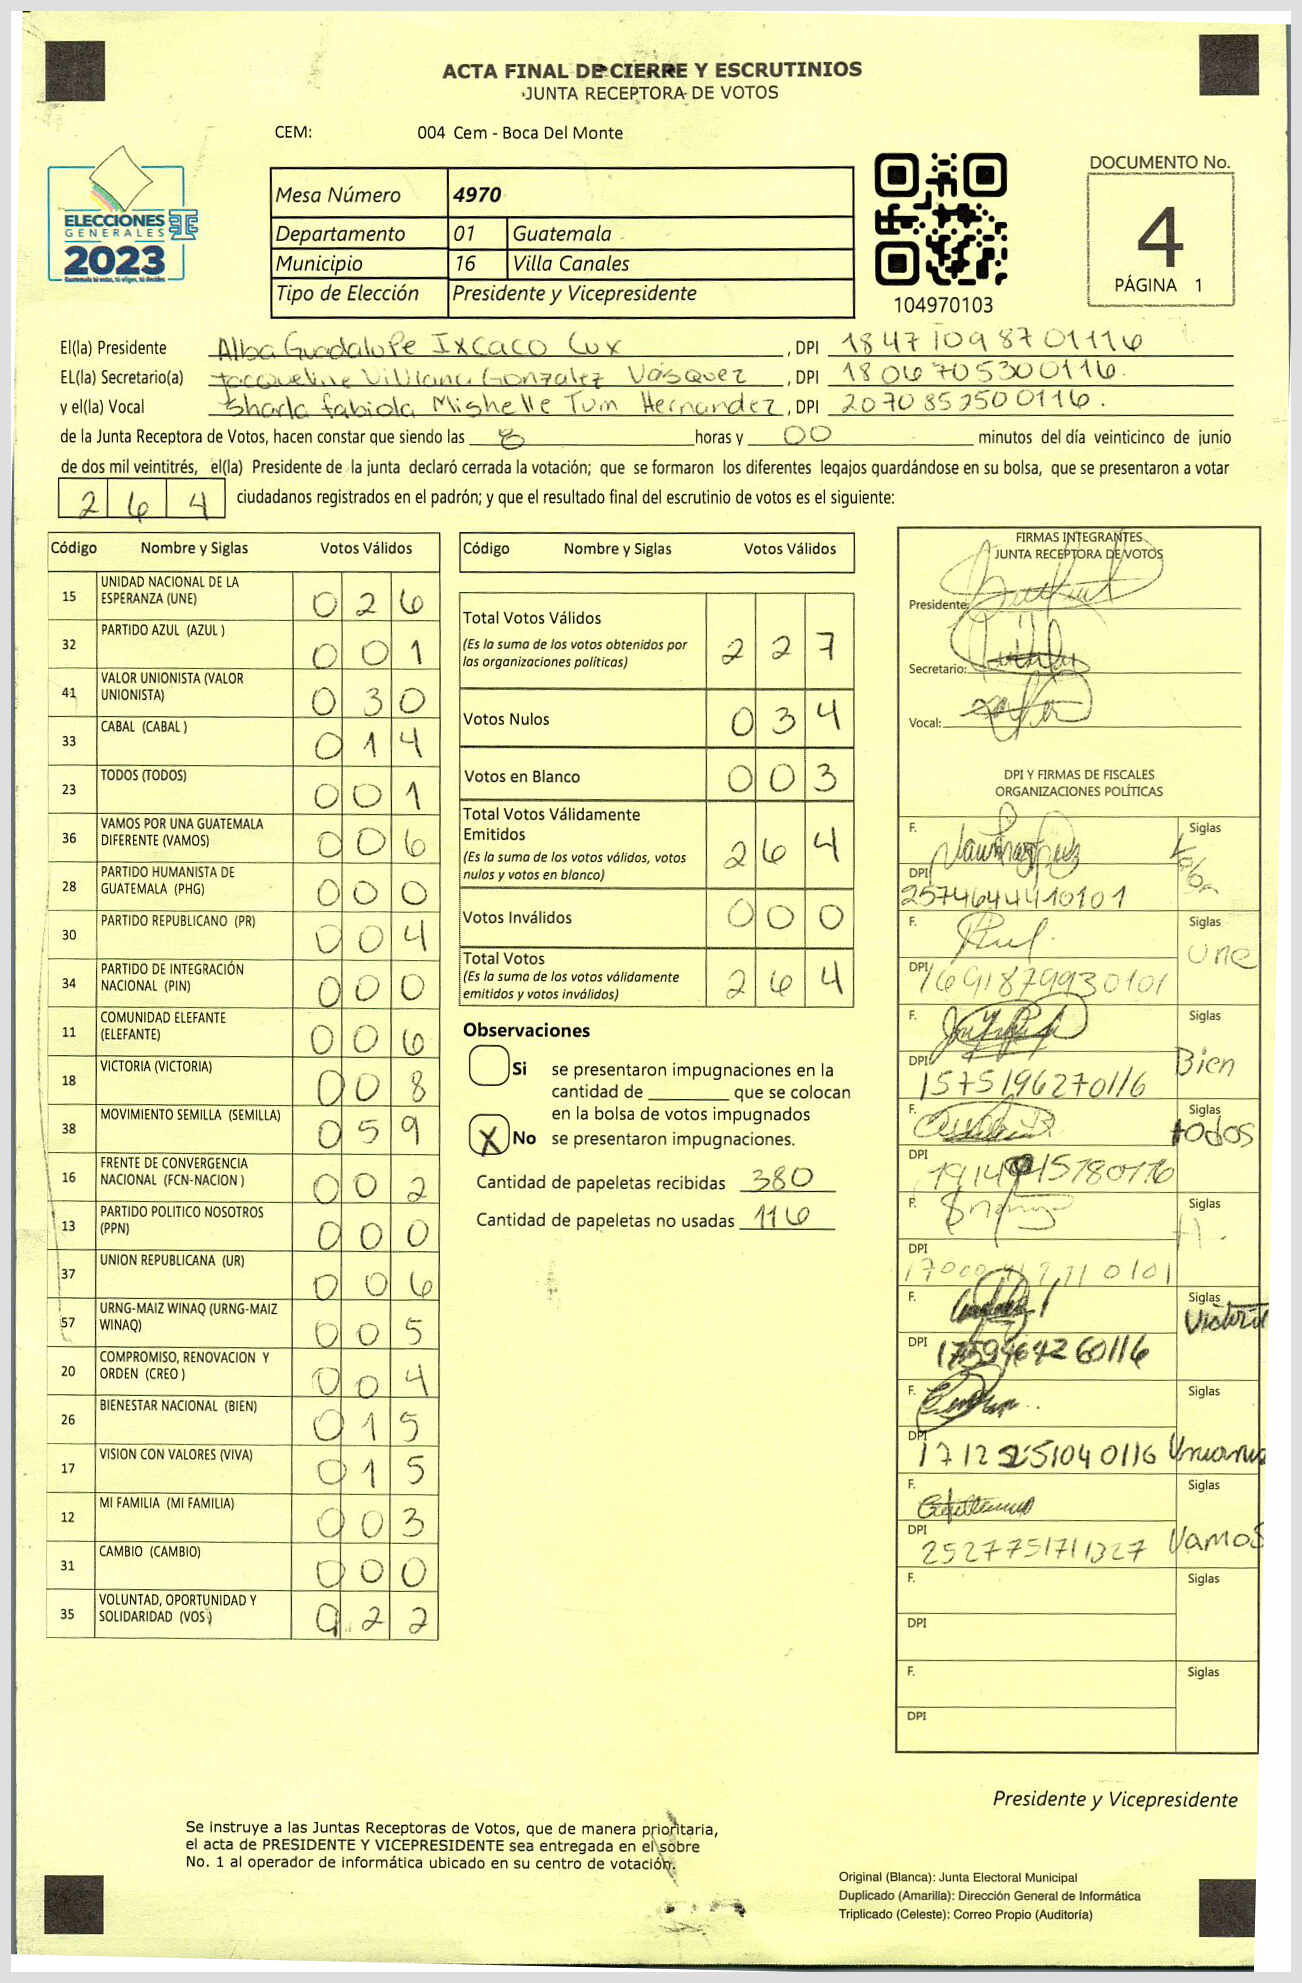 ACTA FINAL DE CIERRE Y ESCRUTINIOS
JUNTA RECEPTORA DE VOTOS
CEM: 004 Cem - Boca Del Monte
ELECCIONES
GENERALES
2023
Mesa Número 4970
Departamento 01 Guatemala
Municipio 16 Villa Canales
Tipo de Elección Presidente y Vicepresidente
104970103
DOCUMENTO No.
4
PÁGINA 1
El(la) Presidente Alba Guadalupe Ixcaco Cux, DPI 1847109870116
EL(la) Secretario(a) Jacqueline Viviana Gonzalez Vasquez, DPI 1806705300116.
y el(la) Vocal Sharla fabiola Mishelle Tum Hernandez, DPI 2070852500116.
de la Junta Receptora de Votos, hacen constar que siendo las 8 horas y 00 minutos del día veinticinco de junio
de dos mil veintitrés, el(la) Presidente de la junta declaró cerrada la votación; que se formaron los diferentes legajos guardándose en su bolsa, que se presentaron a votar
264 ciudadanos registrados en el padrón; y que el resultado final del escrutinio de votos es el siguiente:
Código Nombre y Siglas Votos Válidos
15 UNIDAD NACIONAL DE LA ESPERANZA (UNE) 026
32 PARTIDO AZUL (AZUL ) 001
41 VALOR UNIONISTA (VALOR UNIONISTA) 030
33 CABAL (CABAL ) 014
23 TODOS (TODOS) 001
36 VAMOS POR UNA GUATEMALA DIFERENTE (VAMOS) 006
28 PARTIDO HUMANISTA DE GUATEMALA (PHG) 000
30 PARTIDO REPUBLICANO (PR) 004
34 PARTIDO DE INTEGRACIÓN NACIONAL (PIN) 000
11 COMUNIDAD ELEFANTE (ELEFANTE) 006
18 VICTORIA (VICTORIA) 008
38 MOVIMIENTO SEMILLA (SEMILLA) 059
16 FRENTE DE CONVERGENCIA NACIONAL (FCN-NACION ) 002
13 PARTIDO POLITICO NOSOTROS (PPN) 000
37 UNION REPUBLICANA (UR) 006
57 URNG-MAIZ WINAQ (URNG-MAIZ WINAQ) 005
20 COMPROMISO, RENOVACION Y ORDEN (CREO ) 004
26 BIENESTAR NACIONAL (BIEN) 015
17 VISION CON VALORES (VIVA) 015
12 MI FAMILIA (MI FAMILIA) 003
31 CAMBIO (CAMBIO) 000
35 VOLUNTAD, OPORTUNIDAD Y SOLIDARIDAD (VOS) 022
Código Nombre y Siglas Votos Válidos
Total Votos Válidos 227
(Es la suma de los votos obtenidos por
las organizaciones políticas)
Votos Nulos 034
Votos en Blanco 003
Total Votos Válidamente
Emitidos 264
(Es la suma de los votos válidos, votos
nulos y votos en blanco)
Votos Inválidos 000
Total Votos 264
(Es la suma de los votos válidamente
emitidos y votos inválidos)
Observaciones
Si se presentaron impugnaciones en la
cantidad de ________ que se colocan
en la bolsa de votos impugnados
X No se presentaron impugnaciones.
Cantidad de papeletas recibidas 380
Cantidad de papeletas no usadas 116
FIRMAS INTEGRANTES
JUNTA RECEPTORA DE VOTOS
Presidente:
Secretario:
Vocal:
DPI Y FIRMAS DE FISCALES
ORGANIZACIONES POLÍTICAS
F. Siglas
DPI 2574644410101
F. Siglas une
DPI 1691879930101
F. Siglas Bien
DPI 1575196270116
F. Siglas todos
DPI
F. Siglas
DPI
F. Siglas
DPI
F. Siglas
DPI
F. Siglas Vamos
DPI 2527751711327
F. Siglas
DPI
F. Siglas
DPI
Presidente y Vicepresidente
Se instruye a las Juntas Receptoras de Votos, que de manera prioritaria,
el acta de PRESIDENTE Y VICEPRESIDENTE sea entregada en el sobre
No. 1 al operador de informática ubicado en su centro de votación.
Original (Blanca): Junta Electoral Municipal
Duplicado (Amarilla): Dirección General de Informática
Triplicado (Celeste): Correo Propio (Auditoría)